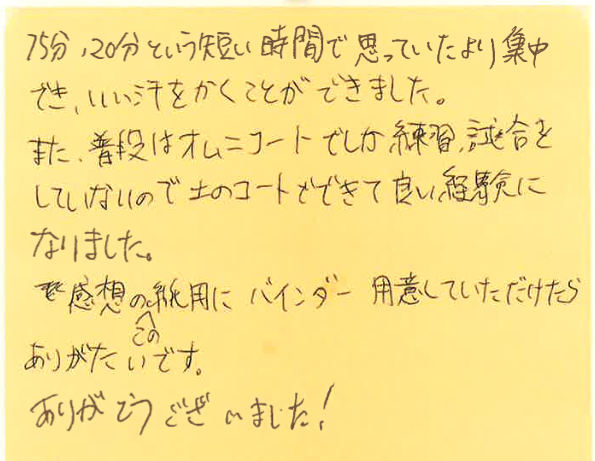 75分,20分という短い時間で思っていたより集中
でき、いい汗をかくことができました。
また、普段はオムニコートでしか練習、試合を
していないので土のコートでできて良い経験に
なりました。
感想の紙用に バインダー 用意していただけたら
この
ありがたいです。
ありがとうございました!